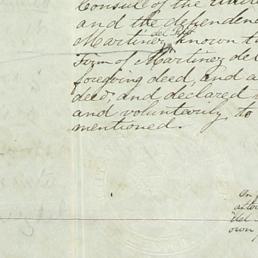 Consul of the United
and the dependenc
Martinez, known t
del Rio
Firm of Martinez del
foregoing deed, and a
deed, and declared
and voluntarily, to
mentioned.
On
del
own